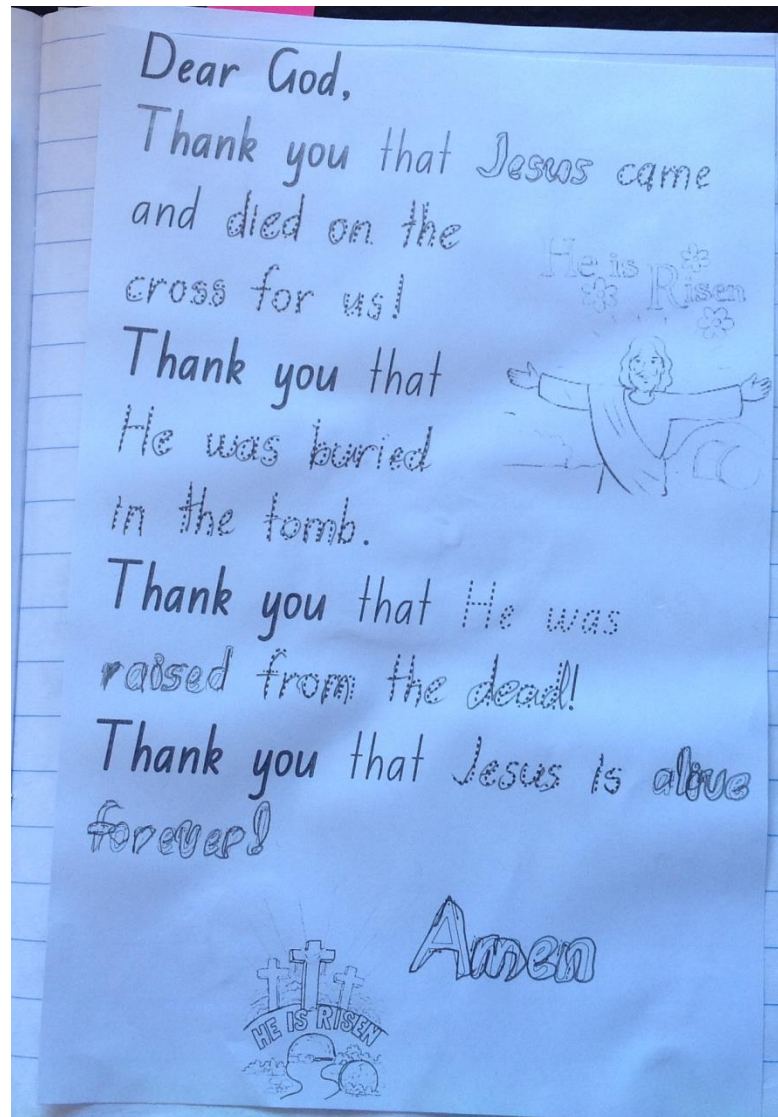 Dear God,
Thank you that Jesus came
and died on the
cross for us!
He is Risen
Thank you that
He was buried
in the tomb.
Thank you that He was
raised from the dead!
Thank you that Jesus is alive
forever!
Amen
HE IS RISEN